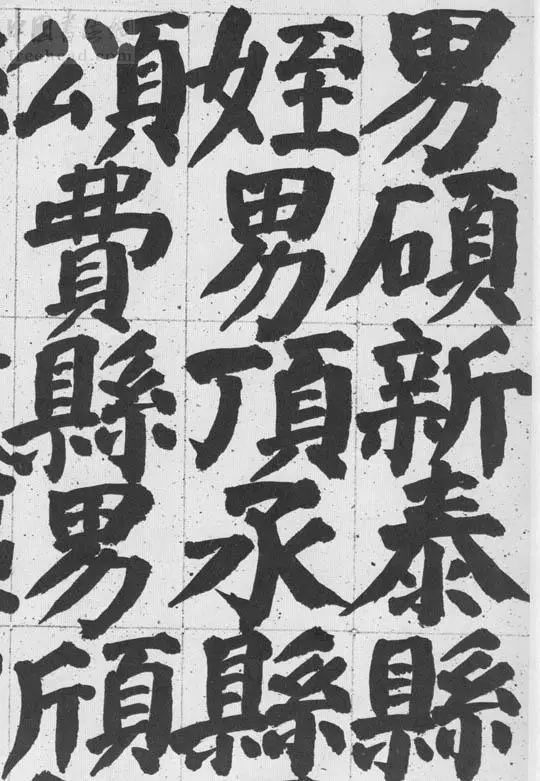 男碩新泰縣
姪男頂承縣
頌費縣男頎